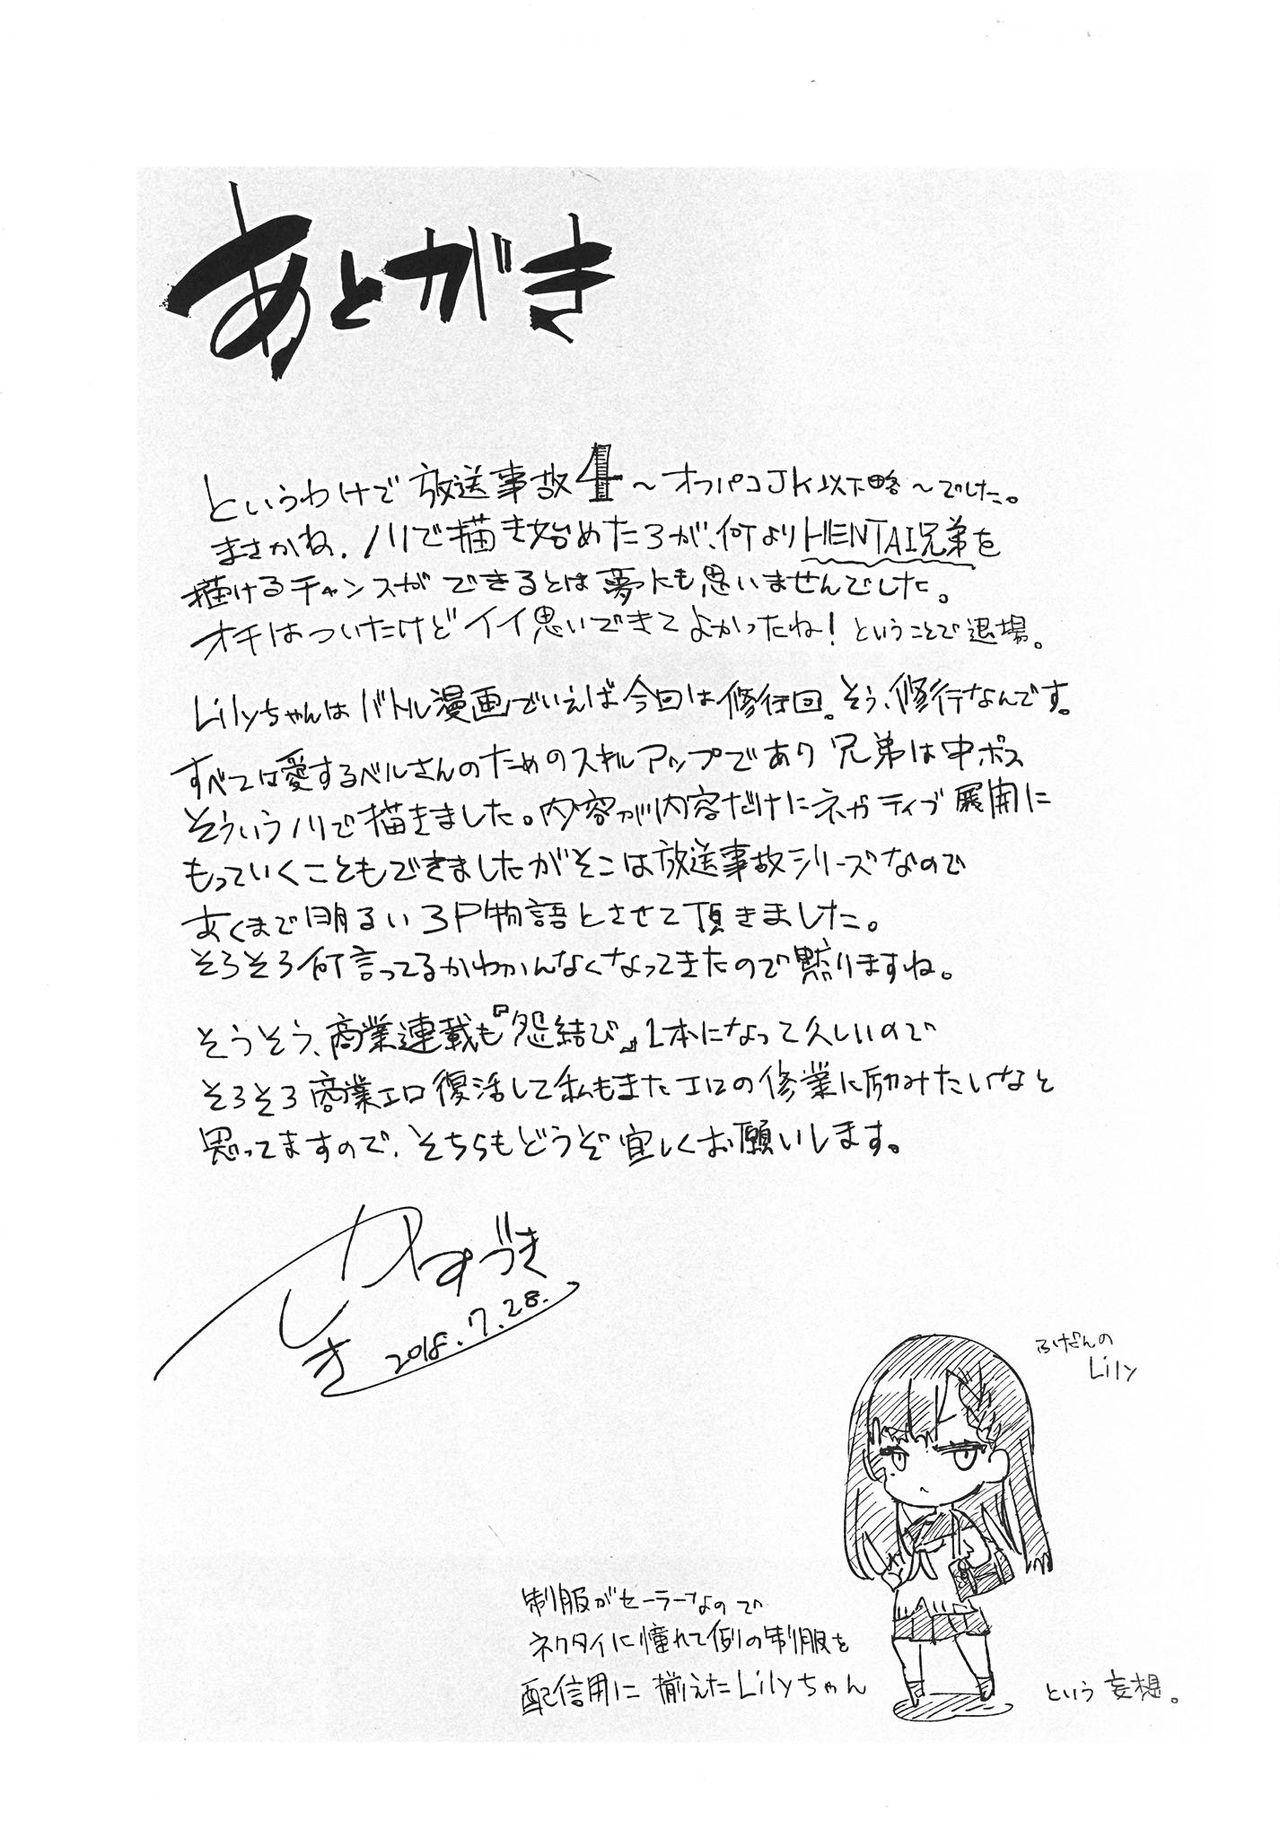 あとがき
というわけで放送事故4～オフパコJK以下略～でした。
まさかね、ノリで描き始めたろが、何よりHENTAI兄弟を
描けるチャンスができるとは夢にも思いませんでした。
オチはついたけどイイ思いできてよかったね!ということで退場。
Lilyちゃんはバトル漫画でいえば今回は修行回。そう、修行なんです。
すべては愛するベルさんのためのスキルアップであり兄弟は中ボス
そういうノリで描きました。内容が内容だけにネガティブ展開に
もっていくこともできましたがそこは放送事故シリーズなので
あくまで明るい3P物語とさせて頂きました。
そろそろ何言ってるかわかんなくなってきたので黙りますね。
そうそう、商業連載も『怨結び』1本になって久しいので
そろそろ商業エロ復活して私もまたエロの修業に励みたいなと
思ってますので、そちらもどうぞ宜しくお願いします。
かずづき
しき
2018.7.28.
ふだんの
Lily
制服がセーラーなので
ネクタイに憧れて例の制服を
配信用に揃えたLilyちゃん
という妄想。